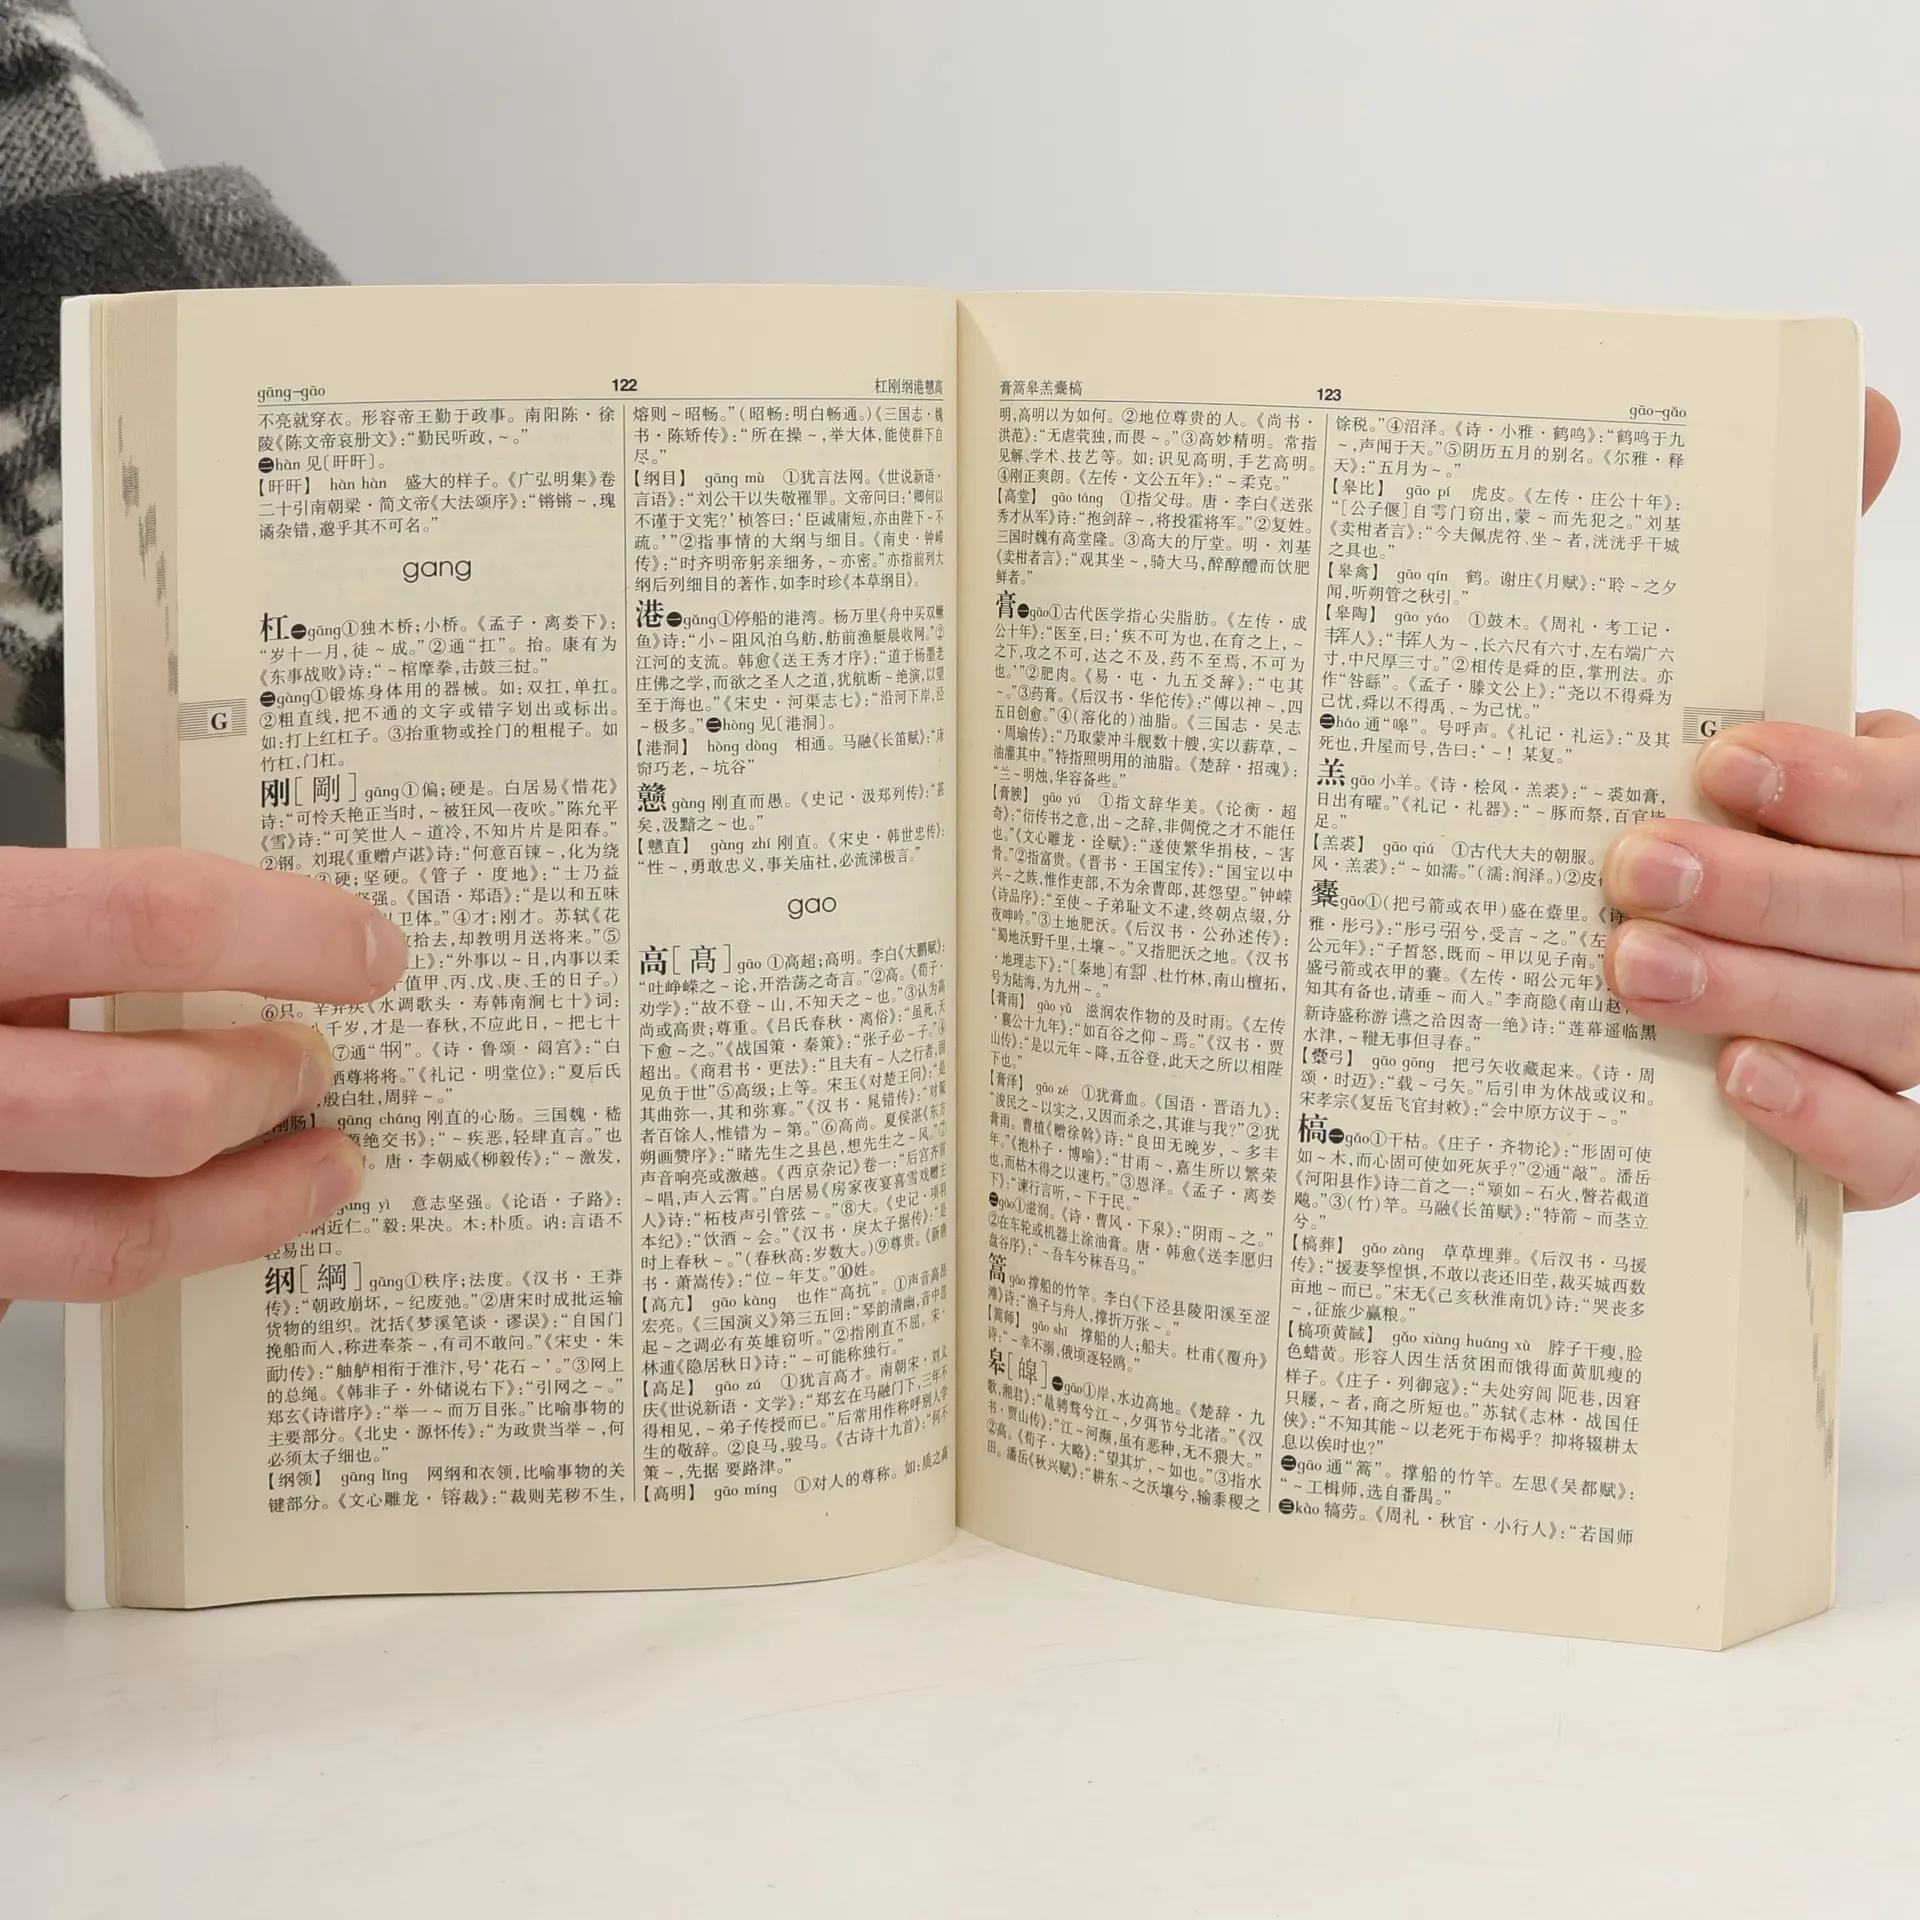 gāng-gāo
122
杠刚纲港戆高
不亮就穿衣。形容帝王勤于政事。南阳陈·徐
陵《陈文帝哀册文》:“勤民听政,~。”
㊁hàn 见〔旰旰〕。
【旰旰】 hàn hàn 盛大的样子。《广弘明集》卷
二十引南朝梁·简文帝《大法颂序》:“锵锵~,瑰
谲杂错,邈乎其不可名。”
gang
杠㊀gāng①独木桥;小桥。《孟子·离娄下》:
“岁十一月,徒~成。”②通“扛”。抬。康有为
《东事战败》诗:“~棺摩拳,击鼓三挝。”
㊁gàng①锻炼身体用的器械。如:双杠,单杠。
②粗直线,把不通的文字或错字划出或标出。
如:打上红杠子。③抬重物或拴门的粗棍子。如
竹杠,门杠。
刚[剛] gāng①偏;硬是。白居易《惜花》
诗:“可怜夭艳正当时,~被狂风一夜吹。”陈允平
《雪》诗:“可笑世人~道冷,不知片片是阳春。”
②钢。刘琨《重赠卢谌》诗:“何意百锤~,化为绕
③硬;坚硬。《管子·度地》:“士乃益
坚强。《国语·郑语》:“是以和五味
卫体。”④才;刚才。苏轼《花
拾去,却教明月送将来。”⑤
上》:“外事以~日,内事以柔
值甲、丙、戊、庚、壬的日子。)
⑥只。辛弃疾《水调歌头·寿韩南涧七十》词:
八千岁,才是一春秋,不应此日,~把七十
⑦通“牨”。《诗·鲁颂·閟宫》:“白
牺尊将将。”《礼记·明堂位》:“夏后氏
殷白牡,周骍~。”
刚肠】 gāng cháng 刚直的心肠。三国魏·嵇
绝交书》:“~疾恶,轻肆直言。”也
唐·李朝威《柳毅传》:“~激发,
gāng yì 意志坚强。《论语·子路》:
讷近仁。”毅:果决。木:朴质。讷:言语不
轻易出口。
纲[綱] gāng①秩序;法度。《汉书·王莽
传》:“朝政崩坏,~纪废弛。”②唐宋时成批运输
货物的组织。沈括《梦溪笔谈·谬误》:“自国门
挽船而人,称进奉茶~,有司不敢问。”《宋史·朱
勔传》:“舳舻相衔于淮汴,号‘花石~’。”③网上
的总绳。《韩非子·外储说右下》:“引网之~。”
郑玄《诗谱序》:“举一~而万目张。”比喻事物的
主要部分。《北史·源怀传》:“为政贵当举~,何
必须太子细也。”
【纲领】 gāng lǐng 网纲和衣领,比喻事物的关
键部分。《文心雕龙·镕裁》:“裁则芜秽不生,
熔则~昭畅。”(昭畅:明白畅通。)《三国志·魏
书·陈矫传》:“所在操~,举大体,能使群下自
尽。”
【纲目】 gāng mù ①犹言法网。《世说新语·
言语》:“刘公干以失敬罹罪。文帝问曰:‘卿何以
不谨于文宪?’桢答曰:‘臣诚庸短,亦由陛下~不
疏。’”②指事情的大纲与细目。《南史·钟嵘
传》:“时齐明帝躬亲细务,~亦密。”亦指前列大
纲后列细目的著作,如李时珍《本草纲目》。
港㊀gǎng①停船的港湾。杨万里《舟中买双鳜
鱼》诗:“小~阻风泊乌舫,舫前渔艇晨收网。”②
江河的支流。韩愈《送王秀才序》:“道于杨墨老
庄佛之学,而欲之圣人之道,犹航断~绝演,以望
至于海也。”《宋史·河渠志七》:“沿河下岸,泾
~极多。”㊁hòng 见[港洞]。
【港洞】 hòng dòng 相通。马融《长笛赋》:“庨
窌巧老,~坑谷”
戆 gàng 刚直而愚。《史记·汲郑列传》:“甚
矣,汲黯之~也。”
【戆直】 gàng zhí 刚直。《宋史·韩世忠传》:
“性~,勇敢忠义,事关庙社,必流涕极言。”
gao
高[髙] gāo ①高超;高明。李白《大鹏赋》:
“吐峥嵘之~论,开浩荡之奇言。”②高。《荀子·
劝学》:“故不登~山,不知天之~也。”③认为高
尚或高贵;尊重。《吕氏春秋·离俗》:“虽死,天
下愈~之。”《战国策·秦策》:“张子必~子。”④
超出。《商君书·更法》:“且夫有~人之行者,固
见负于世”⑤高级;上等。宋玉《对楚王问》:“是
其曲弥一,其和弥寡。”《汉书·晁错传》:“对策
者百馀人,惟错为~第。”⑥高尚。夏侯湛《东方
朔画赞序》:“睹先生之县邑,想先生之~风。”⑦
声音响亮或激越。《西京杂记》卷一:“后宫齐首
~唱,声入云霄。”白居易《房家夜宴喜雪戏赠主
人》诗:“柘枝声引管弦~。”⑧大。《史记·项羽
本纪》:“饮酒~会。”《汉书·戾太子据传》:“是
时上春秋~。”(春秋高:岁数大。)⑨尊贵。《新唐
书·萧嵩传》:“位~年艾。”⑩姓。
【高亢】 gāo kàng 也作“高抗”。①声音高昂
宏亮。《三国演义》第三五回:“琴韵清幽,音中忽
起~之调必有英雄窃听。”②指刚直不屈。宋·
林逋《隐居秋日》诗:“~可能称独行。”
【高足】 gāo zú ①犹言高才。南朝宋·刘义
庆《世说新语·文学》:“郑玄在马融门下,三年不
得相见,~弟子传授而已。”后常用作称呼别人学
生的敬辞。②良马,骏马。《古诗十九首》:“何不
策~,先据 要路津。”
【高明】 gāo míng ①对人的尊称。如:质之高
膏篙皋羔櫜槁
123
gāo-gǎo
明,高明以为如何。②地位尊贵的人。《尚书·
洪范》:“无虐茕独,而畏~。”③高妙精明。常指
见解、学术、技艺等。如:识见高明,手艺高明。
④刚正爽朗。《左传·文公五年》:“~柔克。”
【高堂】 gāo táng ①指父母。唐·李白《送张
秀才从军》诗:“抱剑辞~,将投霍将军。”②复姓。
三国时魏有高堂隆。③高大的厅堂。明·刘基
《卖柑者言》:“观其坐~,骑大马,醉醇醴而饮肥
鲜者。”
膏㊀gāo①古代医学指心尖脂肪。《左传·成
公十年》:“医至,曰:‘疾不可为也,在肓之上,~
之下,攻之不可,达之不及,药不至焉,不可为
也。’”②肥肉。《易·屯·九五爻辞》:“屯其
~。”③药膏。《后汉书·华佗传》:“傅以神~,四
五日创愈。”④(溶化的)油脂。《三国志·吴志
·周瑜传》:“乃取蒙冲斗舰数十艘,实以薪草,~
油灌其中。”特指照明用的油脂。《楚辞·招魂》:
“兰~明烛,华容备些。”
【膏腴】 gāo yú ①指文辞华美。《论衡·超
奇》:“衍传书之意,出~之辞,非倜傥之才不能任
也。”《文心雕龙·诠赋》:“遂使繁华捐枝,~害
骨。”②指富贵。《晋书·王国宝传》:“国宝以中
兴~之族,惟作吏部,不为余曹郎,甚怨望。”钟嵘
《诗品序》:“至使~子弟耻文不逮,终朝点缀,分
夜呻吟。”③土地肥沃。《后汉书·公孙述传》:
“蜀地沃野千里,土壤~。”又指肥沃之地。《汉书
·地理志下》:“[秦地]有鄠、杜竹林,南山檀拓,
号为陆海,为九州~。”
【膏雨】 gāo yǔ 滋润农作物的及时雨。《左传
·襄公十九年》:“如百谷之仰~焉。”《汉书·贾
山传》:“是以元年~降,五谷登,此天之所以相陛
下也。”
【膏泽】 gāo zé ①犹膏血。《国语·晋语九》:
“浚民之~以实之,又因而杀之,其谁与我?”②犹
膏雨。曹植《赠徐斡》诗:“良田无晚岁,~多丰
年。”《抱朴子·博喻》:“甘雨~,嘉生所以繁荣
也,而枯木得之以速朽。”③恩泽。《孟子·离娄
下》:“谏行言听,~下于民。”
㊁gào①滋润。《诗·曹风·下泉》:“阴雨~之。”
②在车轮或机器上涂油膏。唐·韩愈《送李愿归
盘谷序》:“~吾车兮秣吾马。”
篙 gāo 撑船的竹竿。李白《下泾县陵阳溪至涩
滩》诗:“渔子与舟人,撑折万张~。”
【篙师】 gāo shī 撑船的人;船夫。杜甫《覆舟》
诗:“~幸不溺,俄顷逐轻鸥。”
皋[皐]㊀gāo①岸,水边高地。《楚辞·九
歌,湘君》:“鼂骋骛兮江~,夕弭节兮北渚。”《汉
书·贾山传》:“江~河濒,虽有恶种,无不猥大。”
②高。《荀子·大略》:“望其圹,~如也。”③指水
田。潘岳《秋兴赋》:“耕东~之沃壤兮,输黍稷之
馀税。”④沼泽。《诗·小雅·鹤鸣》:“鹤鸣于九
~,声闻于天。”⑤阴历五月的别名。《尔雅·释
天》:“五月为~。”
【皋比】 gāo pí 虎皮。《左传·庄公十年》:
“[公子偃]自雩门窃出,蒙~而先犯之。”刘基
《卖柑者言》:“今夫佩虎符、坐~者,洸洸乎干城
之具也。”
【皋禽】 gāo qín 鹤。谢庄《月赋》:“聆~之夕
闻,听朔管之秋引。”
【皋陶】 gāo yáo ①鼓木。《周礼·考工记·
韗人》:“韗人为~,长六尺有六寸,左右端广六
寸,中尺厚三寸。”②相传是舜的臣,掌刑法。亦
作“咎繇”。《孟子·滕文公上》:“尧以不得舜为
己忧,舜以不得禹、~为己忧。”
㊁háo 通“嗥”。号呼声。《礼记·礼运》:“及其
死也,升屋而号,告曰:‘~!某复。”
羔 gāo 小羊。《诗·桧风·羔裘》:“~裘如膏,
日出有曜。”《礼记·礼器》:“~豚而祭,百官皆
足。”
【羔裘】 gāo qiú ①古代大夫的朝服。
风·羔裘》:“~如濡。”(濡:润泽。)②皮
櫜gāo①(把弓箭或衣甲)盛在櫜里。《诗
雅·彤弓》:“彤弓弨兮,受言~之。”《左
公元年》:“子皙怒,既而~甲以见子南。”
盛弓箭或衣甲的囊。《左传·昭公元年》:
知其有备也,请垂~而入。”李商隐《南山赵
新诗盛称游讌之洽因寄一绝》诗:“莲幕遥临黑
水津,~鞬无事但寻春。”
【櫜弓】 gāo gōng 把弓矢收藏起来。《诗·周
颂·时迈》:“载~弓矢。”后引申为休战或议和。
宋孝宗《复岳飞官封敕》:“会中原方议于~。”
槁㊀gǎo①干枯。《庄子·齐物论》:“形固可使
如~木,而心固可使如死灰乎?”②通“敲”。潘岳
《河阳县作》诗二首之一:“颎如~石火,瞥若截道
飚。”③(竹)竿。马融《长笛赋》:“特箭~而茎立
兮。”
【槁葬】 gǎo zàng 草草埋葬。《后汉书·马援
传》:“援妻孥惶惧,不敢以丧还旧茔,裁买城西数
亩地~而已。”宋无《己亥秋淮南饥》诗:“哭丧多
~,征旅少赢粮。”
【槁项黄馘】 gǎo xiàng huáng xù 脖子干瘦,脸
色蜡黄。形容人因生活贫困而饿得面黄肌瘦的
样子。《庄子·列御寇》:“夫处穷闾阨巷,因窘
只屦,~者,商之所短也。”苏轼《志林·战国任
侠》:“不知其能~以老死于布褐乎?抑将辍耕太
息以俟时也?”
㊁gāo 通“篙”。撑船的竹竿。左思《吴都赋》:
“~工楫师,选自番禺。”
㊂kào 犒劳。《周礼·秋官·小行人》:“若国师
G
G